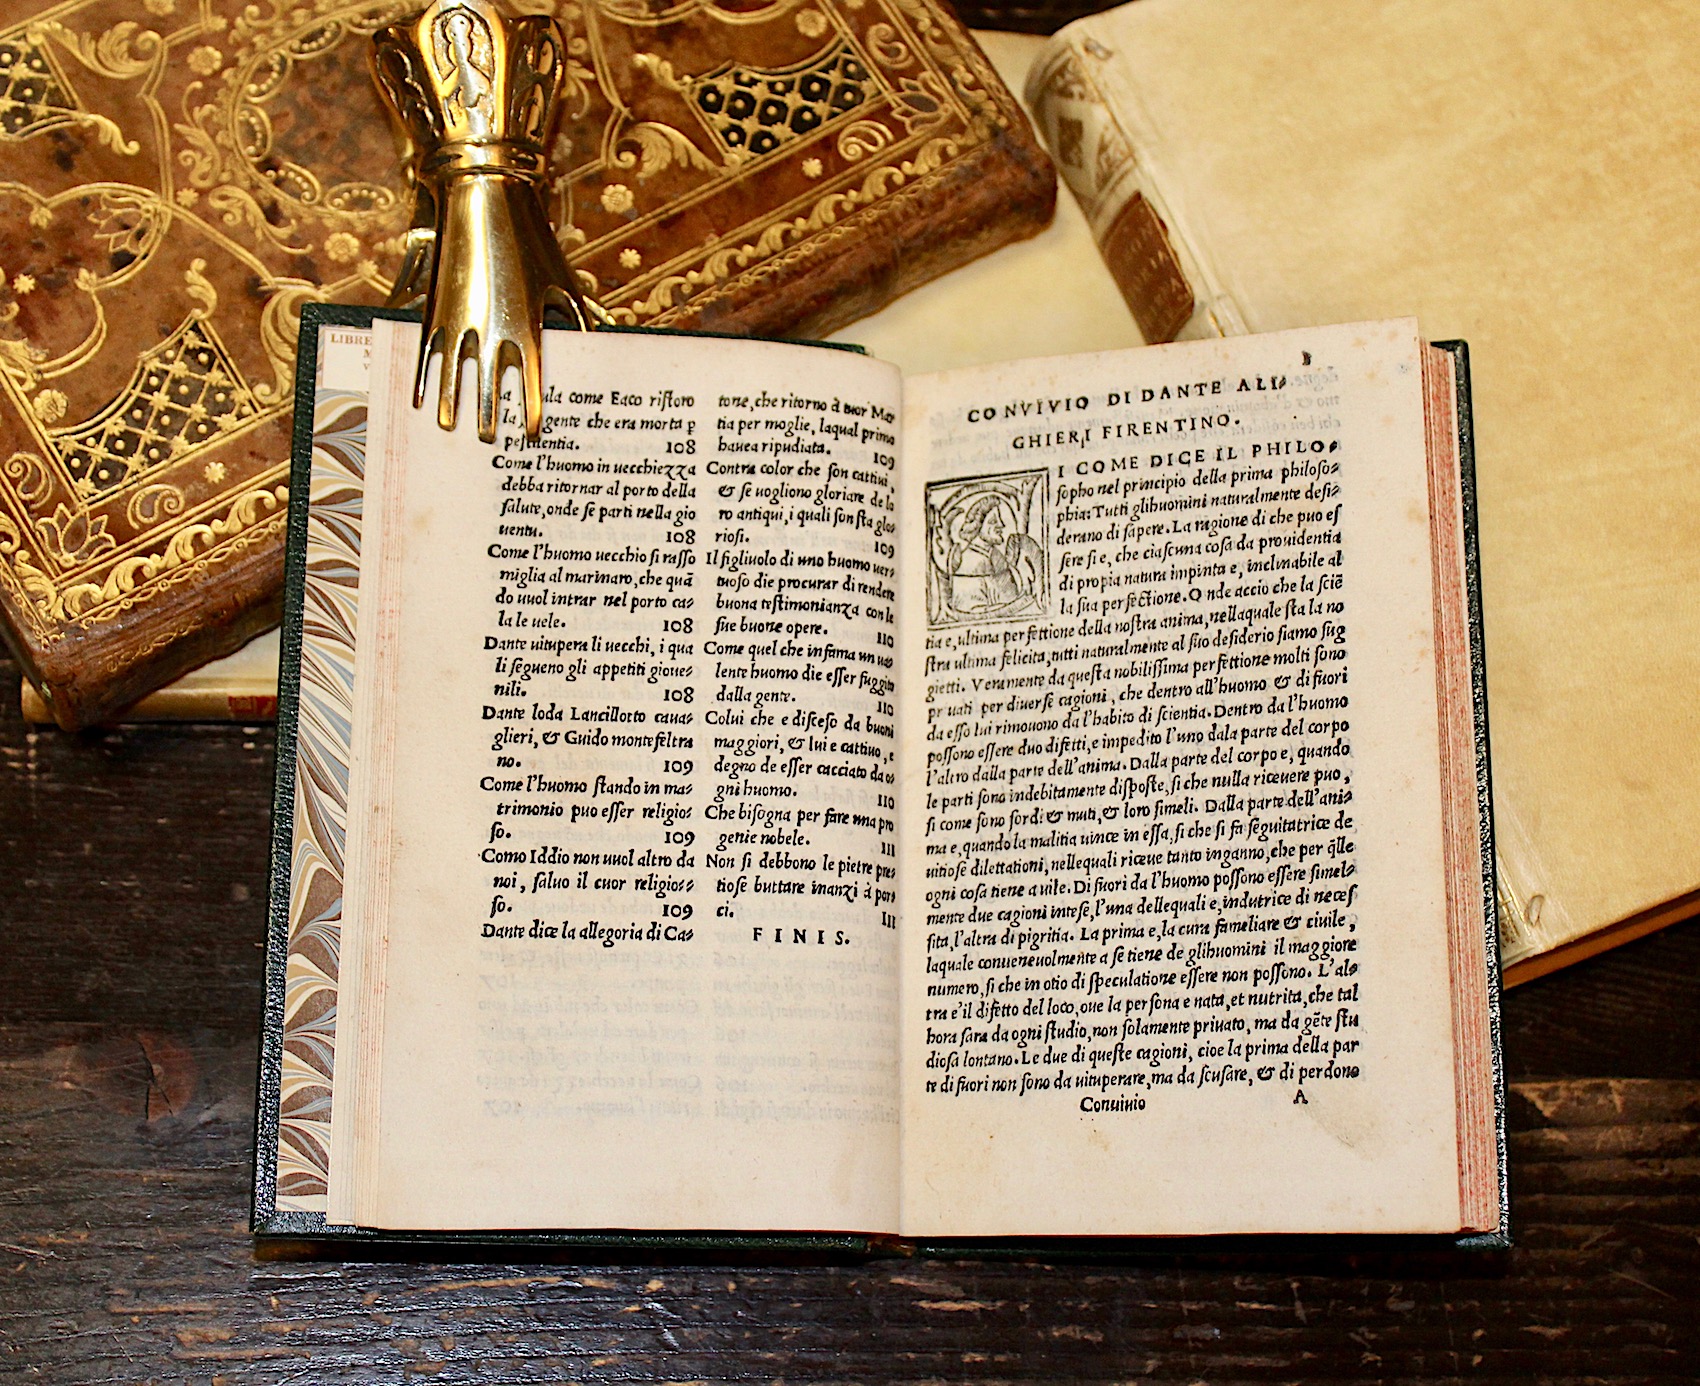 LIBRE
M
V
la come Eaco riſtoro
la gente che era morta ꝑ
peſtilentia. 108
Come l'huomo in uecchiezza
debba ritornar al porto della
ſalute, onde ſe parti nella gio
uentu. 108
Come l'huomo uecchio ſi raſſo
miglia al marinaro, che quā
do uuol intrar nel porto ca⸗
la le uele. 108
Dante uitupera li uecchi, i qua
li ſegueno gli appetiti gioue⸗
nili. 108
Dante loda Lancillotto caua⸗
glieri, & Guido montefeltra
no. 109
Come l'huomo ſtando in ma⸗
trimonio puo eſſer religio⸗
ſo. 109
Como Iddio non uuol altro da
noi, ſaluo il cuor religio⸗
ſo. 109
Dante dice la allegoria di Ca⸗
tone, che ritorno à tuor Mar
tia per moglie, laqual prima
hauea ripudiata. 109
Contra color che ſon cattiui,
& ſe uogliono gloriare de lo
ro antiqui, i quali ſon ſta glo⸗
rioſi. 109
Il figliuolo di uno huomo uer⸗
tuoſo die procurar di rendere
buona teſtimonianza con le
ſue buone opere. 110
Come quel che infama un ua⸗
lente huomo die eſſer fuggito
dalla gente. 110
Colui che e diſceſo da buoni
maggiori, & lui e cattiuo, e
degno de eſſer cacciato da o⸗
gni huomo. 110
Che biſogna per fare una pro
genie nobele. 111
Non ſi debbono le pietre pre⸗
tioſe buttare inanzi à por⸗
ci. 111
FINIS.
CONVIVIO DI DANTE ALI⸗
GHIERI FIRENTINO.
I COME DICE IL PHILO⸗
ſopho nel principio della prima philoſo⸗
phia: Tutti glihuomini naturalmente deſi⸗
derano di ſapere. La ragione di che puo eſ
ſere ſi e, che ciaſcuna coſa da prouidentia
di propia natura impinta e, inclinabile al
la ſua perfectione. Onde accio che la ſciē
tia e, ultima perfettione della noſtra anima, nellaquale ſta la no
ſtra ultima felicita, tutti naturalmente al ſuo deſiderio ſiamo ſug
gietti. Veramente da queſta nobiliſſima perfettione molti ſono
priuati per diuerſe cagioni, che dentro all'huomo & di fuori
da eſſo lui rimouono da l'habito di ſcientia. Dentro da l'huomo
poſſono eſſere duo difetti, e impedito l'uno dala parte del corpo
l'altro dalla parte dell'anima. Dalla parte del corpo e, quando
le parti ſono indebitamente diſpoſte, ſi che nulla riceuere puo,
ſi come ſono ſordi & muti, & loro ſimeli. Dalla parte dell'ani⸗
ma e, quando la malitia uince in eſſa, ſi che ſi fa ſeguitatrice de
uitioſe dilettationi, nellequali riceue tanto inganno, che per q̃lle
ogni coſa tiene a uile. Di fuori da l'huomo poſſono eſſere ſimel⸗
mente due cagioni inteſe, l'una dellequali e, indutrice di neceſ
ſita, l'altra di pigritia. La prima e, la cura fameliare & ciuile,
laquale conueneuolmente a ſe tiene de glihuomini il maggiore
numero, ſi che in otio di ſpeculatione eſſere non poſſono. L'al⸗
tra e'il difetto del loco, oue la perſona e nata, et nutrita, che tal
hora ſara da ogni ſtudio, non ſolamente priuato, ma da gēte ſtu
dioſa lontano. Le due di queſte cagioni, cioe la prima della par
te di fuori non ſono da uituperare, ma da ſcuſare, & di perdono
Conuiuio A